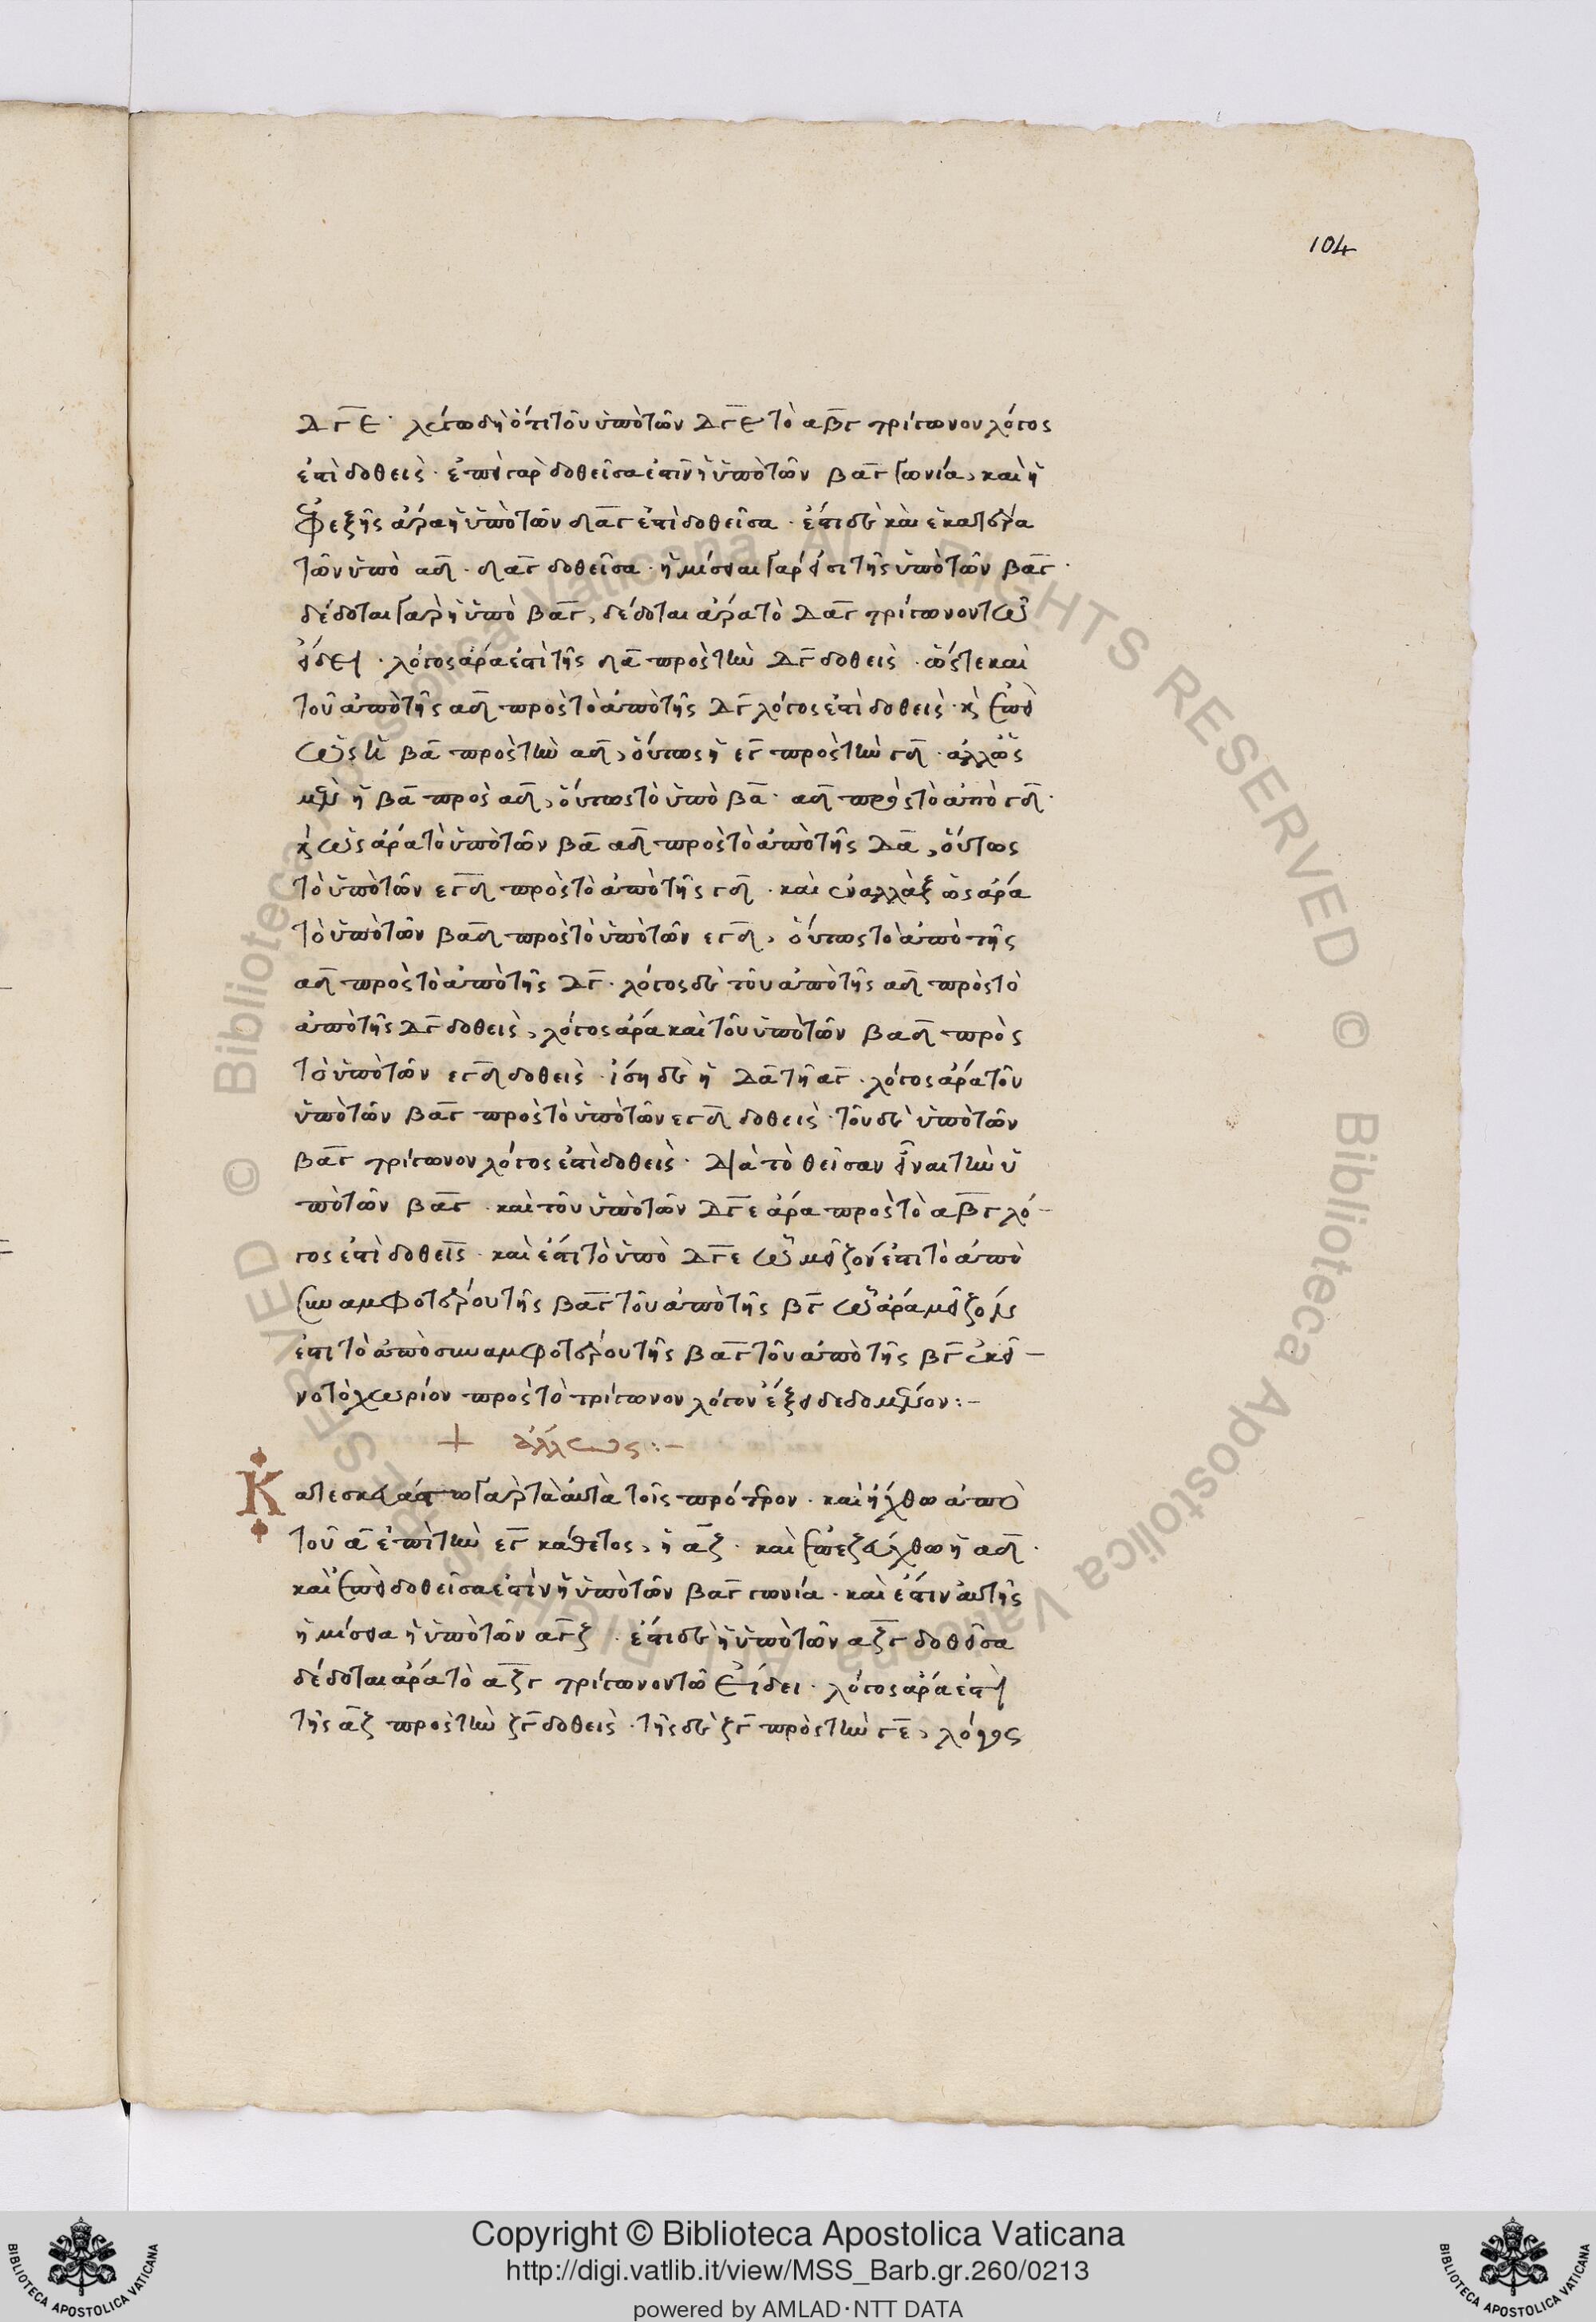 104
ΔΓΕ · λέγω δὴ ὅτι τοῦ ὑπὸ τῶν ΔΓΕ τὸ αβγ τρίγωνον λόγος
ἐστὶ δοθείς · ἐπεὶ γὰρ δοθεῖσα ἐστὶν ἡ ὑπὸ τῶν βαγ γωνία, καὶ ἡ
ἐφεξῆς ἄρα ἡ ὑπὸ τῶν δαγ ἐστὶ δοθεῖσα · ἔστι δὲ καὶ ἑκατέρα
τῶν ὑπὸ αδ · δαγ δοθεῖσα · ἡμίσεια γάρ ἐστι τῆς ὑπὸ τῶν βαγ ·
δέδοται γὰρ ἡ ὑπὸ βαγ, δέδοται ἄρα τὸ Δαγ τρίγωνον τῷ
εἴδει · λόγος ἄρα ἐστὶ τῆς δα πρὸς τὴν Δγ δοθείς · ὥστε καὶ
τοῦ ἀπὸ τῆς αδ πρὸς τὸ ἀπὸ τῆς Δγ λόγος ἐστὶ δοθείς · καὶ ἐπεὶ
ὡς ἡ βα πρὸς τὴν αδ, οὕτως ἡ εγ πρὸς τὴν γδ · ἀλλ' ὡς
μὲν ἡ βα πρὸς αδ, οὕτως τὸ ὑπὸ βα · αδ πρὸς τὸ ἀπὸ γδ ·
καὶ ὡς ἄρα τὸ ὑπὸ τῶν βα αδ πρὸς τὸ ἀπὸ τῆς Δα, οὕτως
τὸ ὑπὸ τῶν εγδ πρὸς τὸ ἀπὸ τῆς γδ · καὶ ἐναλλὰξ ὡς ἄρα
τὸ ὑπὸ τῶν βαδ πρὸς τὸ ὑπὸ τῶν εγδ, οὕτως τὸ ἀπὸ τῆς
αδ πρὸς τὸ ἀπὸ τῆς Δγ · λόγος δὲ τοῦ ἀπὸ τῆς αδ πρὸς τὸ
ἀπὸ τῆς Δγ δοθείς, λόγος ἄρα καὶ τοῦ ὑπὸ τῶν βαδ πρὸς
τὸ ὑπὸ τῶν εγδ δοθείς · ἴση δὲ ἡ Δα τῇ αγ · λόγος ἄρα τοῦ
ὑπὸ τῶν βαγ πρὸς τὸ ὑπὸ τῶν εγδ δοθείς · τοῦ δὲ ὑπὸ τῶν
βαγ τρίγωνον λόγος ἐστὶ δοθείς · Διὰ τὸ θεῖσαν εἶναι τὴν ὑ
πὸ τῶν βαγ · καὶ τοῦ ὑπὸ τῶν ΔΓε ἄρα πρὸς τὸ αβγ λό-
γος ἐστὶ δοθείς · καὶ ἔστι τὸ ὑπὸ ΔΓε ᾧ μεῖζόν ἐστι τὸ ἀπὸ
συναμφοτέρου τῆς βαγ τοῦ ἀπὸ τῆς βγ ᾧ ἄρα μεῖζόν
ἐστι τὸ ἀπὸ συναμφοτέρου τῆς βαγ τοῦ ἀπὸ τῆς βγ ἐκεῖ-
νο τὸ χωρίον πρὸς τὸ τρίγωνον λόγον ἕξει δεδομένον :-
+ ἄλλως :-
Κατεσκευάσθω γὰρ τὰ αὐτὰ τοῖς πρότερον · καὶ ἤχθω ἀπὸ
τοῦ α ἐπὶ τὴν εγ κάθετος, ἡ αζ · καὶ ἐπεζεύχθω ἡ αδ ·
καὶ ἐπεὶ δοθεῖσα ἐστὶν ἡ ὑπὸ τῶν βαγ γωνία · καὶ ἔστιν αὐτῆς
ἡμίσεια ἡ ὑπὸ τῶν αγζ · ἔστι δὲ ἡ ὑπὸ τῶν αζγ δοθεῖσα
δέδοται ἄρα τὸ αζγ τρίγωνον τῷ εἴδει · λόγος ἄρα ἐστὶ
τῆς αζ πρὸς τὴν ζγ δοθείς · τῆς δὲ ζγ πρὸς τὴν γε, λόγος
© Biblioteca Apostolica Vaticana ALL RIGHTS RESERVED
Copyright © Biblioteca Apostolica Vaticana
http://digi.vatlib.it/view/MSS_Barb.gr.260/0213
powered by AMLAD·NTT DATA
BIBLIOTECA APOSTOLICA VATICANA
BIBLIOTECA APOSTOLICA VATICANA